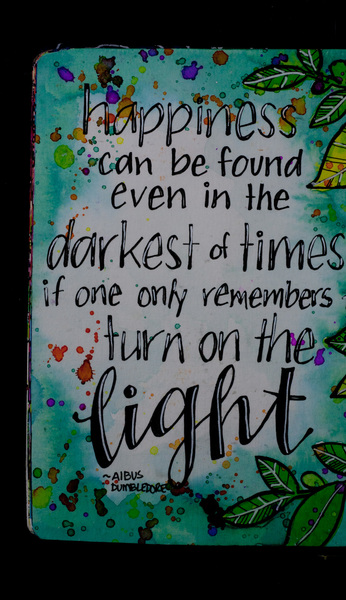 happiness
can be found
even in the
darkest of times
if one only remembers
turn on the
light
~AlBUS
DUMBLEDORE